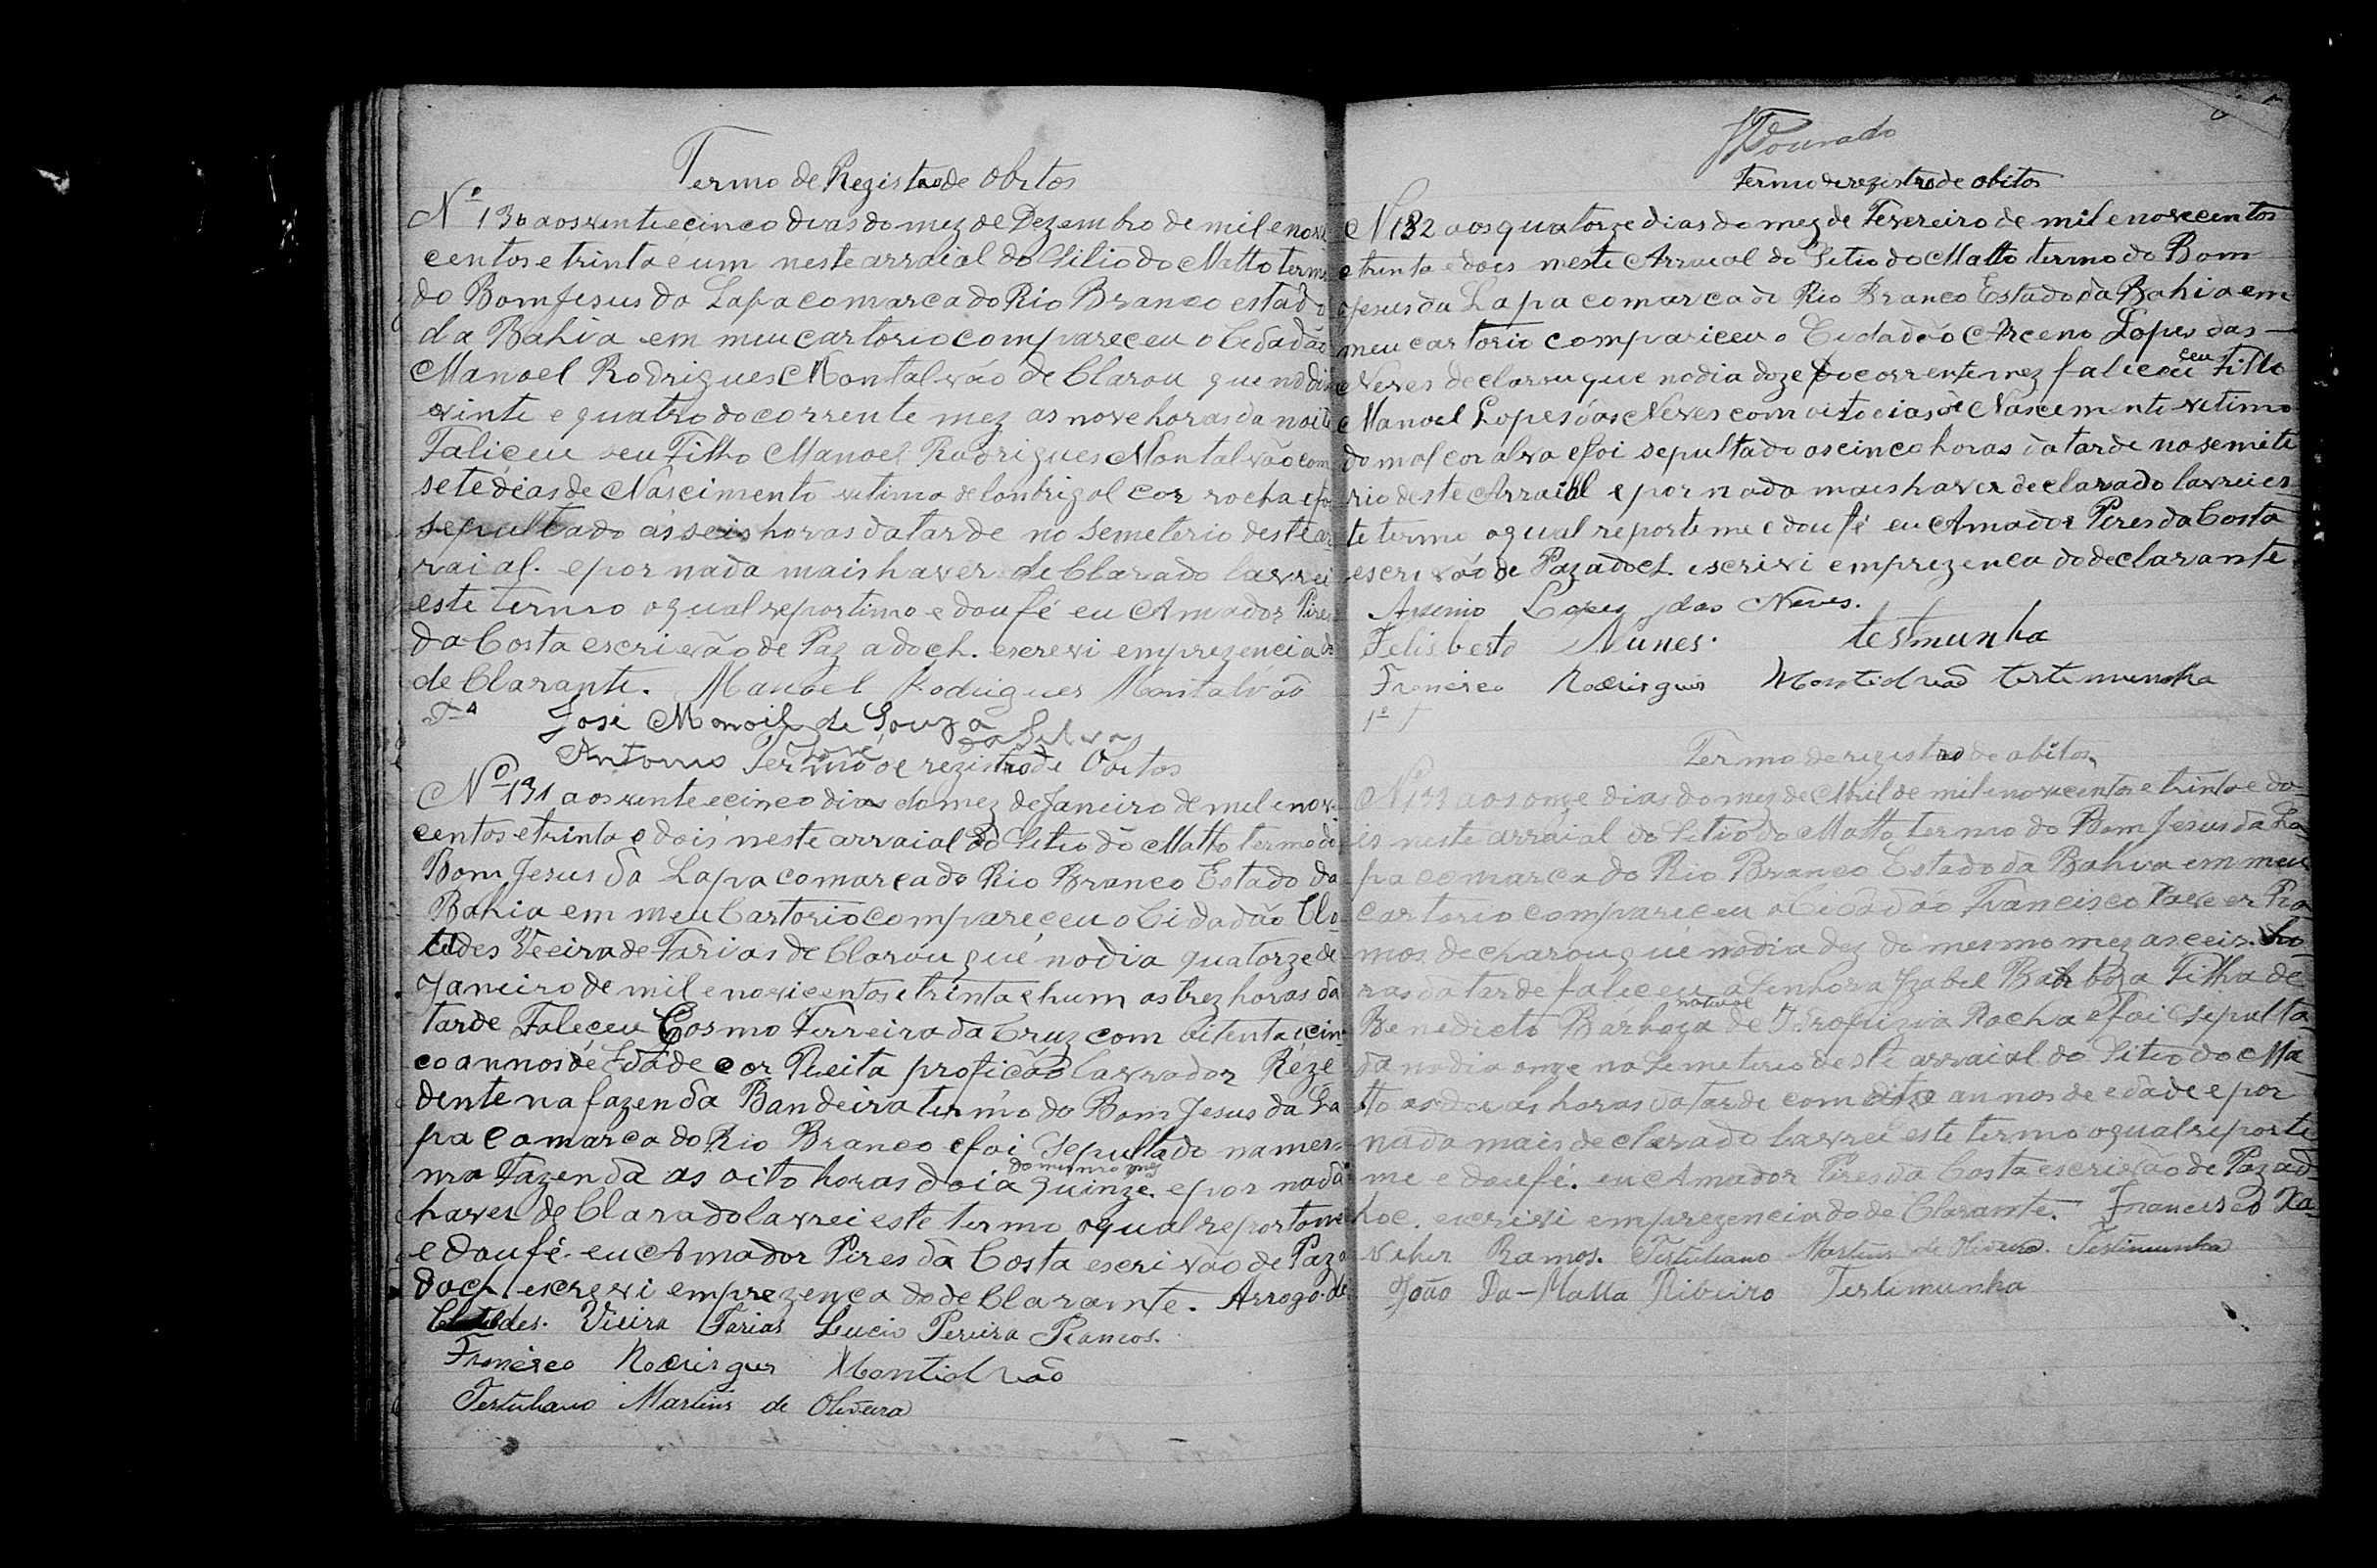 Termo de Registro de Obitos
Nº 130 aos vinte e cinco dias do mez de Dezembro de mil e nove
centos e trinta e um neste arraial do Sitio do Matto termo
do Bom Jesus da Lapa comarca do Rio Branco estado
da Bahia em meu cartorio compareceu o Cidadão
Manoel Rodrigues Montalvão de Clarou que no dia
vinte e quatro do corrente mez as nove horas da noite
Faliceu seu Filho Manoel Rodrigues Montalvão com
sete dias de Nascimento vitimo de lonbrigol cor rocha e foi
sepultado ás seis horas da tarde no Semeterio deste ar
raial. e por nada mais haver de Clarado lavrei
este termo o qual reportimo e dou fé eu Amador Pires
da Costa escrivão de Paz adoch. escrevi em prezencia do
de Clarante. Manoel Rodrigues Montalvão
Tª José Manoel de Souza
Antonio José da Silva
Termo de rezistro de Obitos
Nº 131 aos vinte e cinco dias do mez de Janeiro de mil e nov-
centos e trinta e dois neste arraial do Sitio do Matto termo do
Bom Jesus da Lapa comarca do Rio Branco Estado da
Bahia em meu Cartorio compareçeu o Cidadão Clo-
tildes Veeira de Farias de Clarou que no dia quatorze de
Janeiro de mil e novicentos e trinta e hum as trez horas da
tarde Faleçeu Cosmo Ferreira da Cruz com Oitenta e cin-
co annos de Edade cor Preita profição lavrador Reze-
dente na fazenda Bandeira termo do Bom Jesus da La
pa Comarca do Rio Branco e foi Sepultado na mes-
ma Fazenda as oito horas do dia quinze do mesmo mez e por nada
haver de Clarado lavrei este termo o qual reportome
e dou fé. eu Amador Pires da Costa escrivão de Paz a
doch escrevi em prezença do de Clarante. Arrogo. de
Clotildes. Vieira Farias Lucio Pereira Ramos.
Francisco Rodrigues Montalvão
Tertuliano Martins de Oliveira
Dourado
Termo de rezistro de obitos
N 132 aos quatorze dias do mez de Fevereiro de mil e novecentos
e trinta e dois neste Arraial do Sitio do Matto termo do Bom
Jesus da Lapa comarca do Rio Branco Estado da Bahia em
meu cartorio compariceu o Cidadão Arceno Lopes das
Neves declarou que no dia doze do corrente mez faliceu ceu Filho
Manoel Lopes das Neves com oito dias de Nascimento vitimo
do mal cor alva e foi sepultado as cinco horas da tarde no semite
rio deste Arraial e por nada mais haver declarado lavrei es-
te termo o qual reporteme e dou fé eu Amador Pires da Costa
escrivão de Paz adoch. escrivi em prezença do declarante
Arsenio Lopes das Neves.
Felisberto Nunes. testmunha
Francisco Rodrigues Montalvão testemunha
1º T
Termo de registro de obitos,
Nº 133 aos onze dias do mez de Abril de mil e novecentos e trinta e do-
is neste arraial do Sitio do Matto termo do Bom Jesus da La
pa comarca do Rio Branco Estado da Bahia em meu
cartorio compariceu o Cidadão Francisco Xavier Ra
mos de charou que no dia dez do mesmo mez as ceis ho
ras da tarde faliceu a Senhora Izabel Barboza Filha de
Benedicto Barboza natural de Idrofizia Rocha e foi Sepulta-
da no dia onze no Semeterio deste arraial do Sitio do Ma
tto as duas horas da tarde com annos de edade e por
nada mais declarado lavrei este termo o qual reporte
me e dou fé. eu Amador Pires da Costa escrivão de Paz ad
hoc. escrivi em prezencia do de Clarante. Francisco Xa-
vier Ramos. Tertuliano Martins de Oliveira. Testimunha
João Da-Matta Ribeiro Testimunha